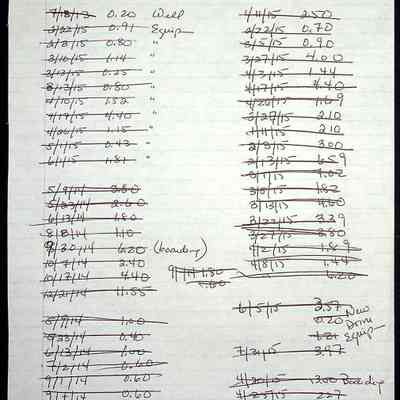 7/8/13 0.20 Well
3/22/15 0.91 Equip
2/8/15 0.80 "
3/10/15 1.14 "
3/12/15 0.25 "
8/13/15 0.80 "
4/10/15 1.52 "
4/17/15 4.40 "
4/26/15 1.15 "
5/1/15 0.43 "
6/1/15 1.81 "
5/9/14
5/23/14 2.60
6/13/14 1.80
8/8/14 1.10
9/30/14 6.20 (boarding)
10/7/14 2.40
10/17/14 4.40
12/21/14 11.55
5/9/14 1.00
5/23/14 0.40
6/13/14 1.00
7/2/14
9/1/14 0.60
9/1/14 0.60
9/11/14 1.80
1/11/15 2.50
2/22/15 0.70
3/5/15 0.90
3/27/15 4.00
4/3/15 1.44
4/17/15 4.40
4/20/15 1.69
3/27/15 2.10
1/11/15 2.10
2/8/15 3.00
2/13/15 6.59
3/1/15 4.02
3/8/15 1.82
3/13/15
3/22/15 3.39
3/27/15 3.80
4/2/15 1.89
4/8/15 1.44
6.20
6/5/15 2.37 New
0.20 Drive
1.21 Equip
7/31/15 3.97
4/20/15 1.00 Boarding
4/25/15 2.27